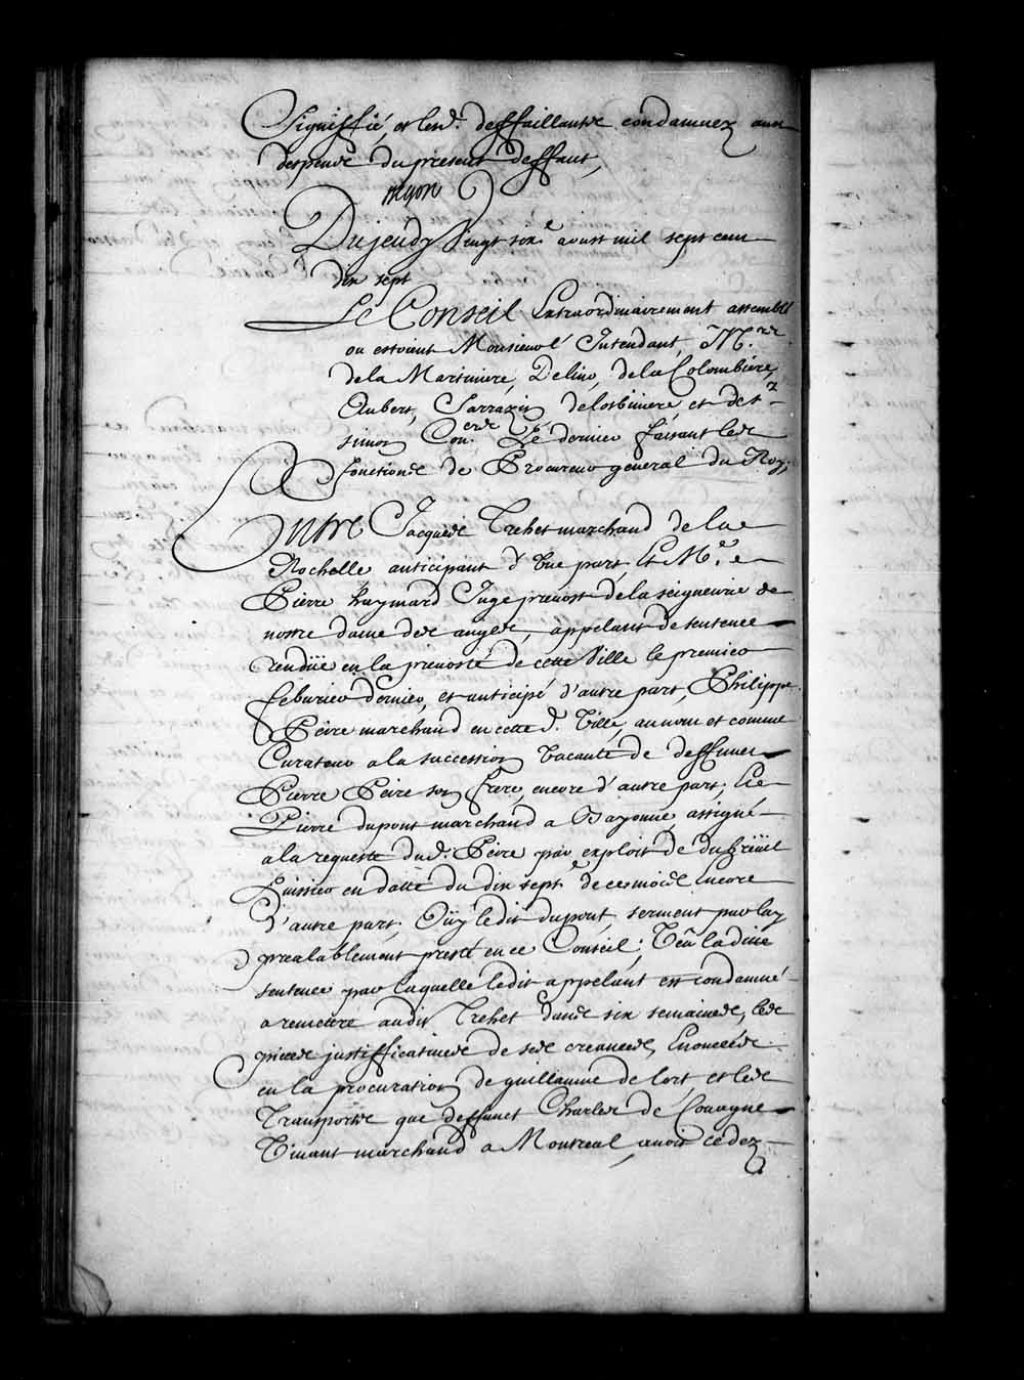 Signiffié, et lesd. deffaillants condamnez aux
despens du present deffaut,
Begon
Du jeudy Vingt six.e aoust mil sept cent
dix sept
Le Conseil Extraordinairement assemblé
ou estoient Monsieur l'Intendant, M.rs
de la Martiniere, Delino, de la Colombiere,
Aubert, Sarrazin delotbiniere et de S.t
simon Con.ers Le dernier faisant les
fonctions de Procureur general du Roy,
Entre Jacques Trehet marchand de la
Rochelle anticipant d'Une part, Et M.e
Pierre haymard Juge prevost de la seigneurie de
nostre dame des anges, appelant de sentence
rendüe en la prevosté de cette Ville le premier
feburier dernier, et anticipé d'autre part, Philippe
Peire marchand en cette d. Ville, au nom et comme
Curateur a la succession Vacante de deffunct
Pierre Peire son frere, encore d'autre part; Et
Pierre dupont marchand a Bayonne assigné
a la requeste dud. Peire par exploit de dubreüil
huissier en datte du dix sept.e de ce mois Encore
d'autre part; Oüy ledit dupont, serment par luy
prealablement presté en ce Conseil; Veu la dite
sentence par laquelle ledit appelant est condamné
a remettre audit Trehet dans six semaines, les
pieces justifficatives de ses creances, Enoncées
en la procuration de guillaume de lort, et les
Transports que deffunct Charles de Couagne
Vivant marchand a Montreal, avoit cedez